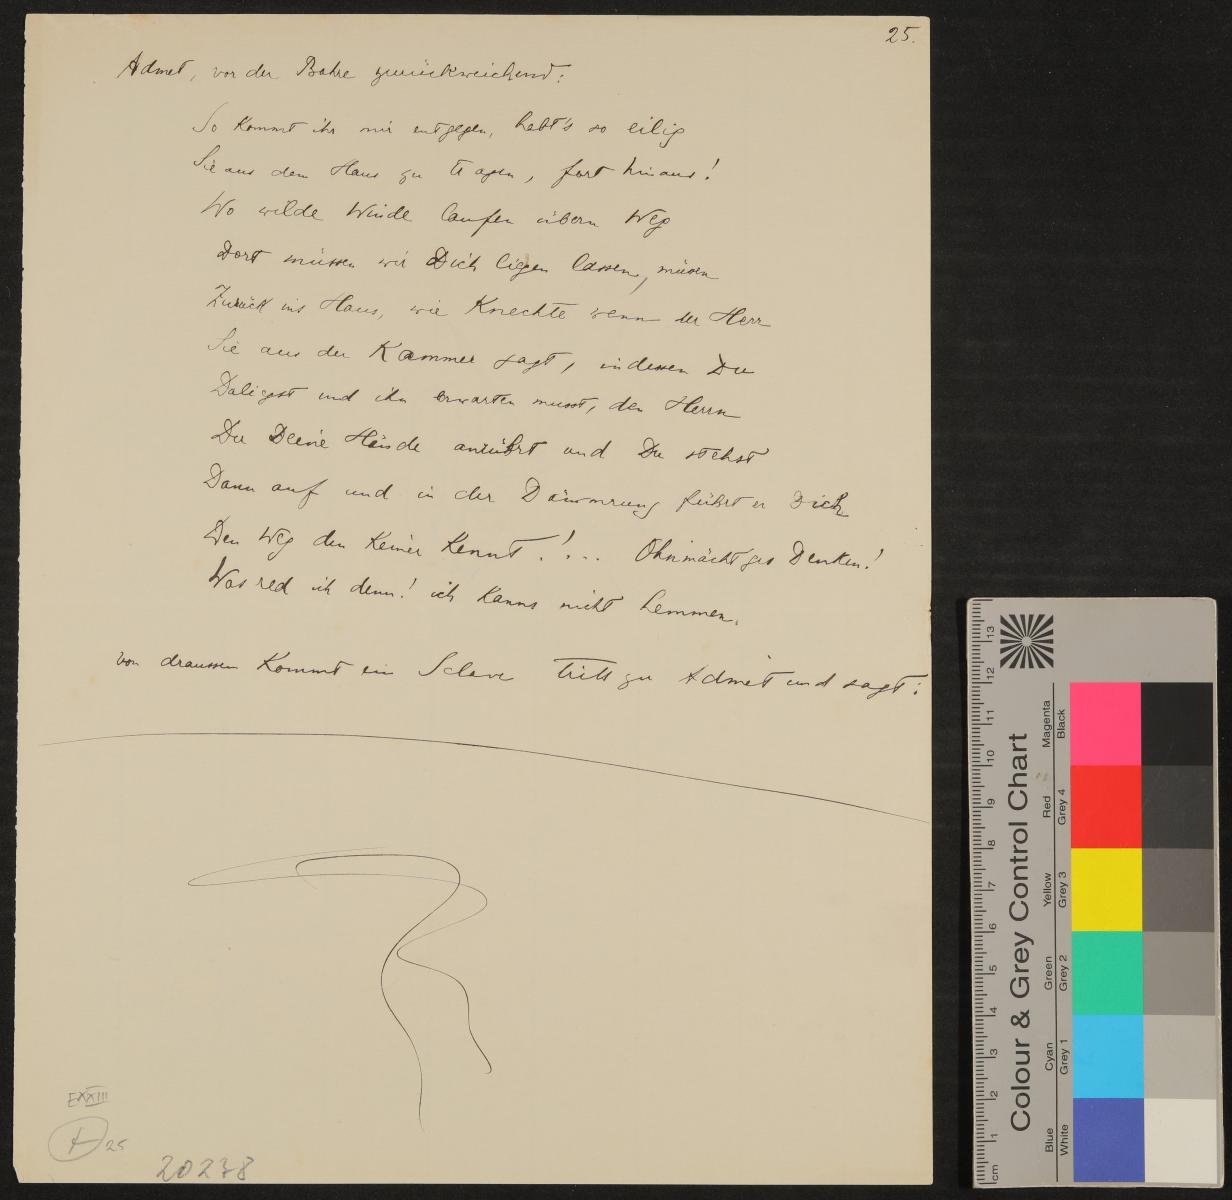 25.
Admet, vor der Bahre zurückweichend:
So kommt ihr mir entgegen, habt's so eilig
Sie aus dem Haus zu tragen, fort hinaus!
Wo wilde Winde laufen übern Weg
Dort müssen wir Dich liegen lassen, müssen
Zurück ins Haus, wie Knechte wenn der Herr
Sie aus der Kammer jagt, indessen Du
Daliegst und ihn erwarten musst, den Herrn
Der Deine Hände anrührt und Du stehst
Dann auf und in der Dämmrung führt er Dich
Den Weg den Keiner kennt!... Ohnmächtges Denken!
Was red ich denn! ich kanns nicht hemmen.
von draussen kommt ein Sclave tritt zu Admet und sagt:
EXXIII
A 25
20278
Colour & Grey Control Chart
Blue Cyan Green Yellow Red Magenta
White Grey 1 Grey 2 Grey 3 Grey 4 Black
cm 1 2 3 4 5 6 7 8 9 10 11 12 13